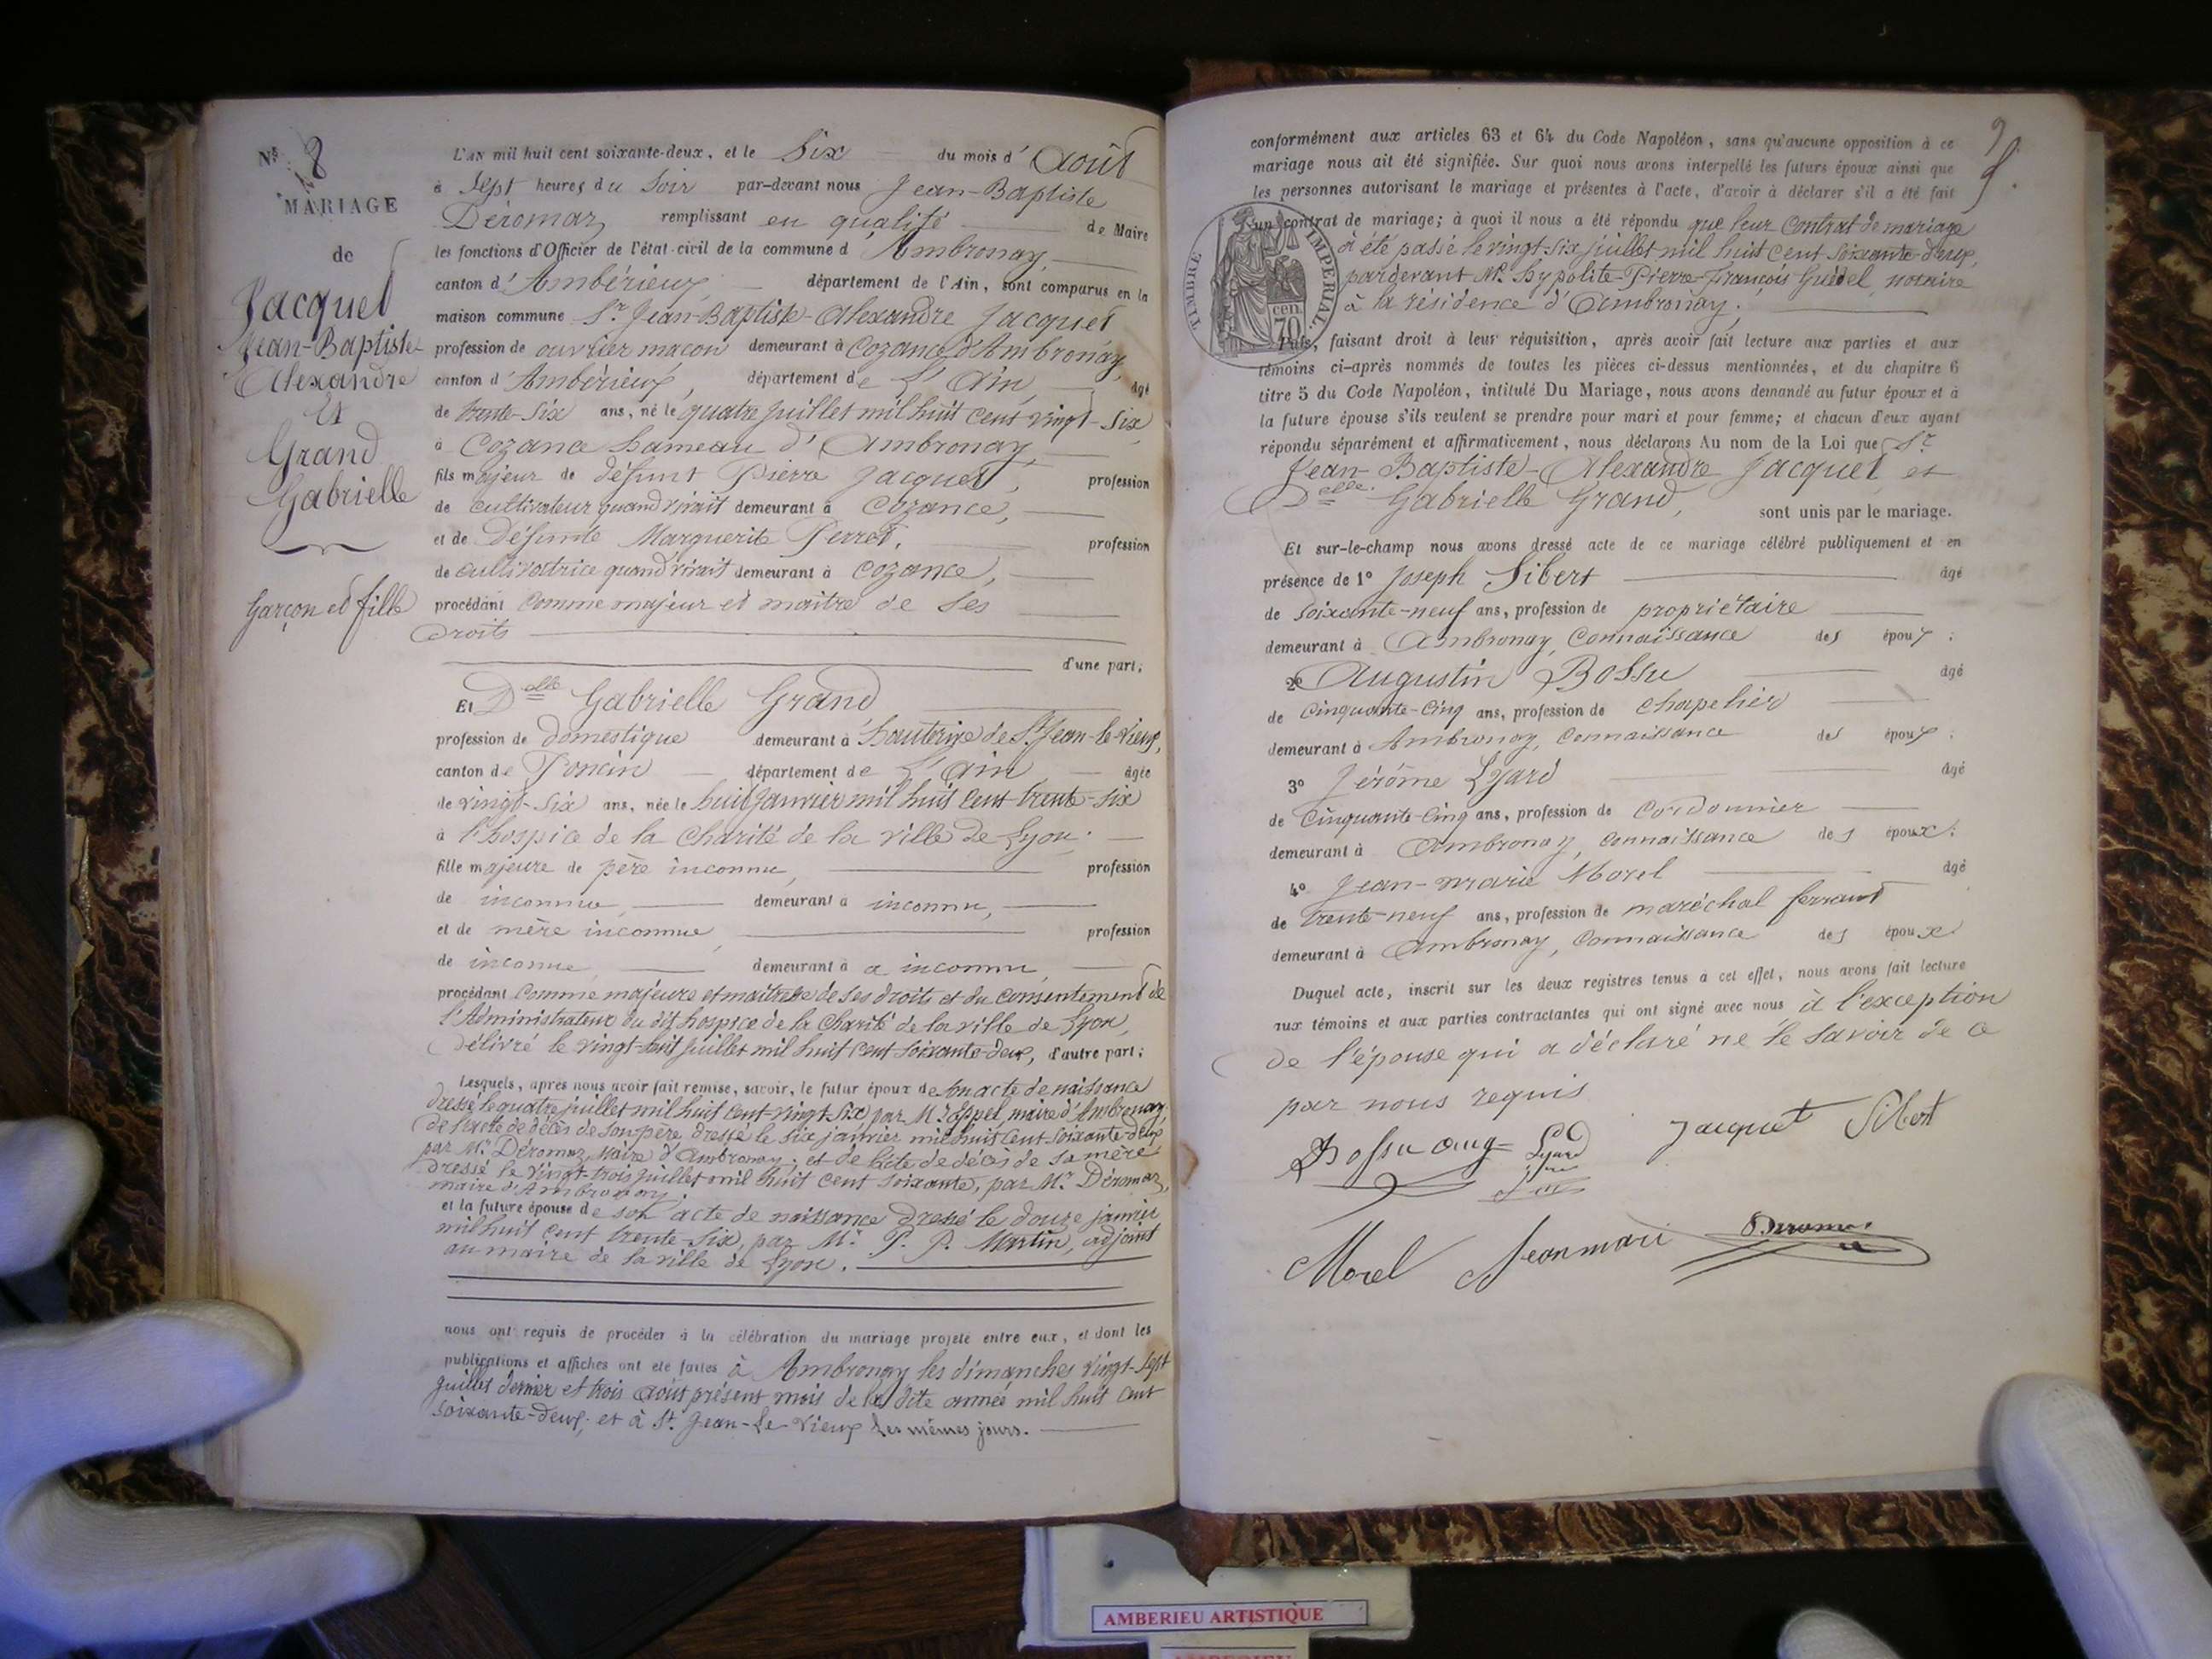 N° 8
MARIAGE
de
Jacquet
Jean-Baptiste-
Alexandre
et
Grand
Gabrielle
Garçon et fille
L'AN mil huit cent soixante-deux, et le Six du mois d' Août
à Sept heures du Soir par-devant nous Jean-Baptiste
Déromaz remplissant en qualité de Maire
les fonctions d'Officier de l'état-civil de la commune d' Ambronay,
canton d' Ambérieux, département de l'Ain, sont comparus en la
maison commune Sr Jean-Baptiste-Alexandre Jacquet
profession de ouvrier maçon demeurant à Cozance d'Ambronay,
canton d' Ambérieux, département de L'Ain, âgé
de trente-six ans, né le quatre juillet mil huit cent vingt-six
à Cozance hameau d'Ambronay,
fils majeur de défunt Pierre Jacquet, profession
de cultivateur quand vivait demeurant à Cozance,
et de Défunte Marguerite Perret, profession
de cultivatrice quand vivait demeurant à Cozance,
procédant comme majeur et maitre de ses
Droits
d'une part;
Et Delle Gabrielle Grand
profession de domestique demeurant à hauterive de St Jean-le-Vieux,
canton de Poncin département de L'Ain âgée
de vingt-six ans, née le huit janvier mil huit cent trente-six
à l'hospice de la Charité de la ville de Lyon;
fille majeure de père inconnu, profession
de inconnue, demeurant à inconnu,
et de mère inconnue, profession
de inconnue demeurant à a inconnu,
procédant comme majeure et maitresse de ses droits et du consentement de
l'Administrateur du dit hospice de la Charité de la ville de Lyon,
Délivré le vingt-huit juillet mil huit cent soixante-deux, d'autre part;
Lesquels, après nous avoir fait remise, savoir, le futur époux de son acte de naissance
dressé le quatre juillet mil huit cent vingt six, par Mr Eppel, maire d'Ambronay;
de l'acte de décès de son père, dressé le six janvier mil huit cent soixante-deux
par Mr Déromaz, Maire d'Ambronay; et de l'acte de décès de sa mère
dressé le vingt-trois juillet mil huit cent soixante, par Mr Déromaz,
maire d'Ambronay;
et la future épouse de son acte de naissance dressé le douze janvier
mil huit cent trente-six, par Mr P. P. Martin, adjoint
au maire de la ville de Lyon.
nous ont requis de procéder à la célébration du mariage projeté entre eux, et dont les
publications et affiches ont été faites à Ambronay les dimanches vingt-sept
juillet dernier et trois août présent mois de la dite année mil huit cent
soixante-deux, et à St Jean-le-Vieux les mêmes jours.
9
conformément aux articles 63 et 64 du Code Napoléon, sans qu'aucune opposition à ce
mariage nous ait été signifiée. Sur quoi nous avons interpellé les futurs époux ainsi que
les personnes autorisant le mariage et présentes à l'acte, d'avoir à déclarer s'il a été fait
un contrat de mariage; à quoi il nous a été répondu que leur Contrat de mariage
à été passé le vingt-six juillet mil huit cent soixante-deux,
pardevant Me hypolite-Pierre-François Guédel, notaire
à la résidence d'Ambronay;
TIMBRE IMPERIAL.
70 cen.
Puis, faisant droit à leur réquisition, après avoir fait lecture aux parties et aux
témoins ci-après nommés de toutes les pièces ci-dessus mentionnées, et du chapitre 6
titre 5 du Code Napoléon, intitulé Du Mariage, nous avons demandé au futur époux et à
la future épouse s'ils veulent se prendre pour mari et pour femme; et chacun d'eux ayant
répondu séparément et affirmativement, nous déclarons Au nom de la Loi que Sr
Jean-Baptiste-Alexandre Jacquet et
Delle Gabrielle Grand, sont unis par le mariage.
Et sur-le-champ nous avons dressé acte de ce mariage célébré publiquement et en
présence de 1° Joseph Sibert âgé
de soixante-neuf ans, profession de propriétaire
demeurant à Ambronay, connaissance des époux;
2° Augustin Bossu âgé
de Cinquante-Cinq ans, profession de chapelier
demeurant à Ambronay, connaissance des époux;
3° Jérôme Lyard âgé
de Cinquante-Cinq ans, profession de Cordonnier
demeurant à Ambronay, connaissance des époux;
4° Jean-marie Morel âgé
de trente-neuf ans, profession de maréchal ferrant
demeurant à Ambronay, Connaissance des époux
Duquel acte, inscrit sur les deux registres tenus à cet effet, nous avons fait lecture
aux témoins et aux parties contractantes qui ont signé avec nous à l'exception
de l'épouse qui a déclaré ne le savoir de ce
par nous requis
Bossu aug Lyard Jacquet Sibert
Morel Jeanmarie Deromaz
AMBERIEU ARTISTIQUE